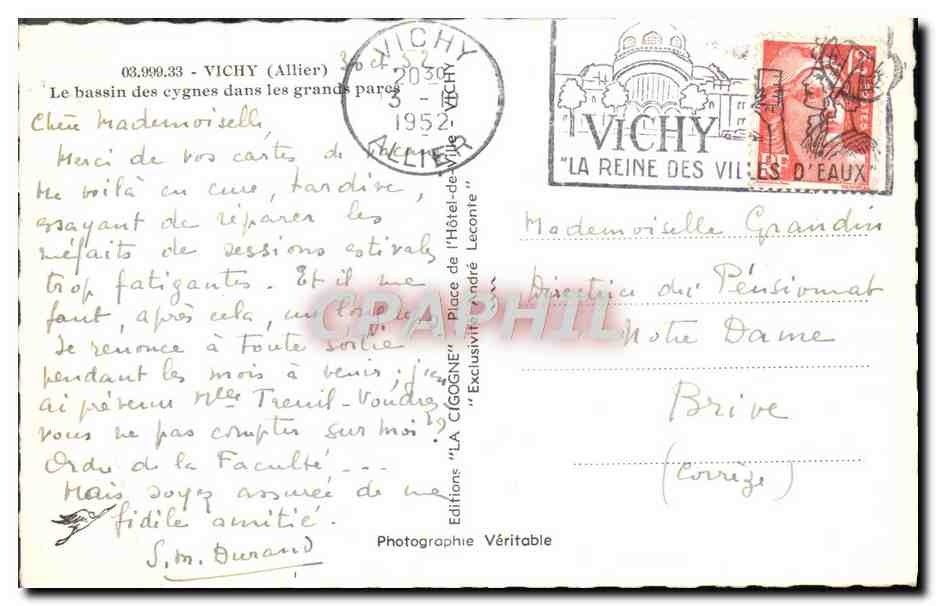 03.999.33 - VICHY (Allier)
Le bassin des cygnes dans les grands parcs
3 oct 52
Chère Mademoiselle,
Merci de vos cartes de
Me voilà en cure, tardive,
essayant de réparer les
méfaits de sessions estivales
trop fatigantes. Et il me
faut, après cela, un long
Je renonce à toute sortie
pendant les mois à venir ; j'en
ai prévenu Mlle Treuil - Voudrez
vous ne pas compter sur moi ?
Ordre de la Faculté ---
Mais soyez assurée de ma
fidèle amitié.
S. M. Durand
Editions "LA CIGOGNE" Place de l'Hôtel-de-Ville - VICHY
"Exclusivité André Leconte"
Photographie Véritable
VICHY
20 30
3 -
1952
ALLIER
VICHY
"LA REINE DES VILLES D'EAUX"
Mademoiselle Grandin
Directrice du Pensionnat
Notre Dame
Brive
(Corrèze)
CPAPHIL